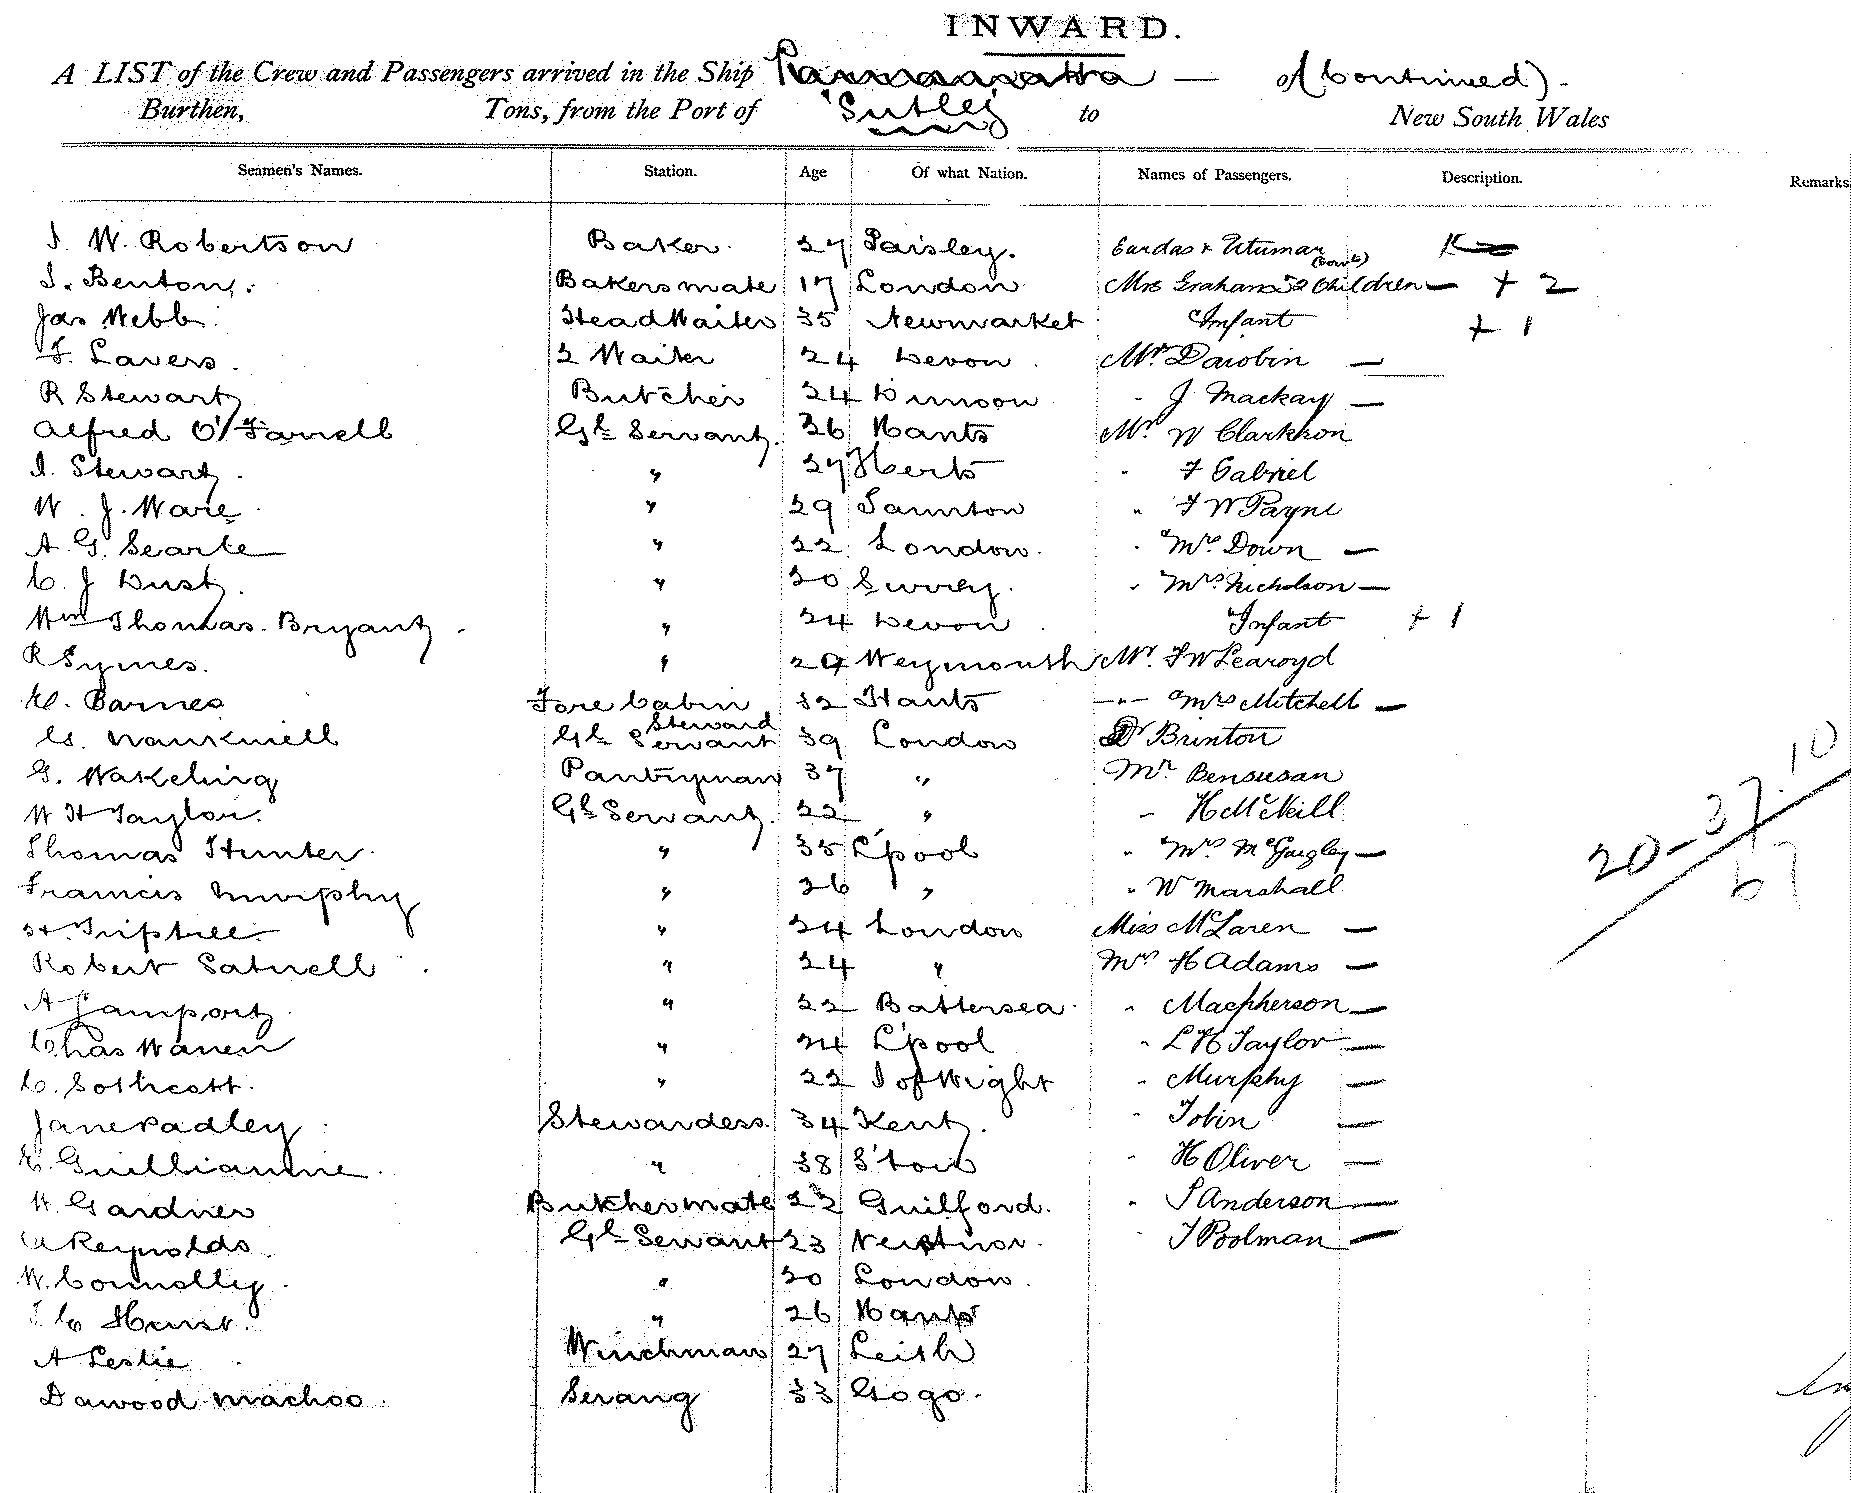 INWARD.
A LIST of the Crew and Passengers arrived in the Ship Parramatta — (Continued).
Burthen, Tons, from the Port of "Sutlej" to New South Wales
Seamen's Names. Station. Age Of what Nation. Names of Passengers. Description. Remarks
J. W. Robertson Baker 27 Paisley.
J. Benton. Bakers mate 17 London Mrs Graham 2 Children — + 2
Jas Webb. Head Waiter 35 Newmarket Infant + 1
F. Lavers. 2 Waiter 24 Devon Mr. —
R Stewart Butcher 24 Dunoon " J Mackay —
Alfred O'Farrell Gl Servant. 26 Hants Mr. W Clarkson
J. Stewart. " 27 Herts " F Gabriel
W. J. Ware " 29 Taunton " F W Payne
A. G. Searle " 22 London. " Mrs. Down —
C. J Dust. " 20 Surrey. " Mrs. Nicholson —
Wm Thomas. Bryant. " 24 Devon Infant + 1
R Symes. " 29 Weymouth Mr. F W Learoyd
E. Barnes Fore Cabin Steward 32 Hants " Mrs Mitchell —
Gl Servant 39 London Dr Brinton
G. Wakeling Pantryman 37 " Mr. Bensusan
W H Taylor. Gl Servant. 22 " " H McNeill
Thomas Hunter. " 35 L'pool " Mrs. —
Francis Murphy " 26 " " W Marshall
H. Triptree " 24 London Miss McLaren —
Robert Satnell " 24 " Mrs H Adams —
A Lamport. " 22 Battersea. " Macpherson —
Chas Warren " 24 L'pool " L H Taylor —
C. Sothcott. " 22 I of Wight " Murphy —
Jane Padley Stewardess. 34 Kent. " Tobin —
E. " 38 S'ton " H Oliver —
H. Gardner Butchers mate 22 Guilford. " S Anderson —
Reynolds Gl Servant 23 Ventnor. " J Poolman —
W. Connolly. " 20 London.
C Hurst. " 26 Hants
A Leslie Winchman 27 Leith
Dawood Machoo. Serang 33 Gogo.
20-37.10
67